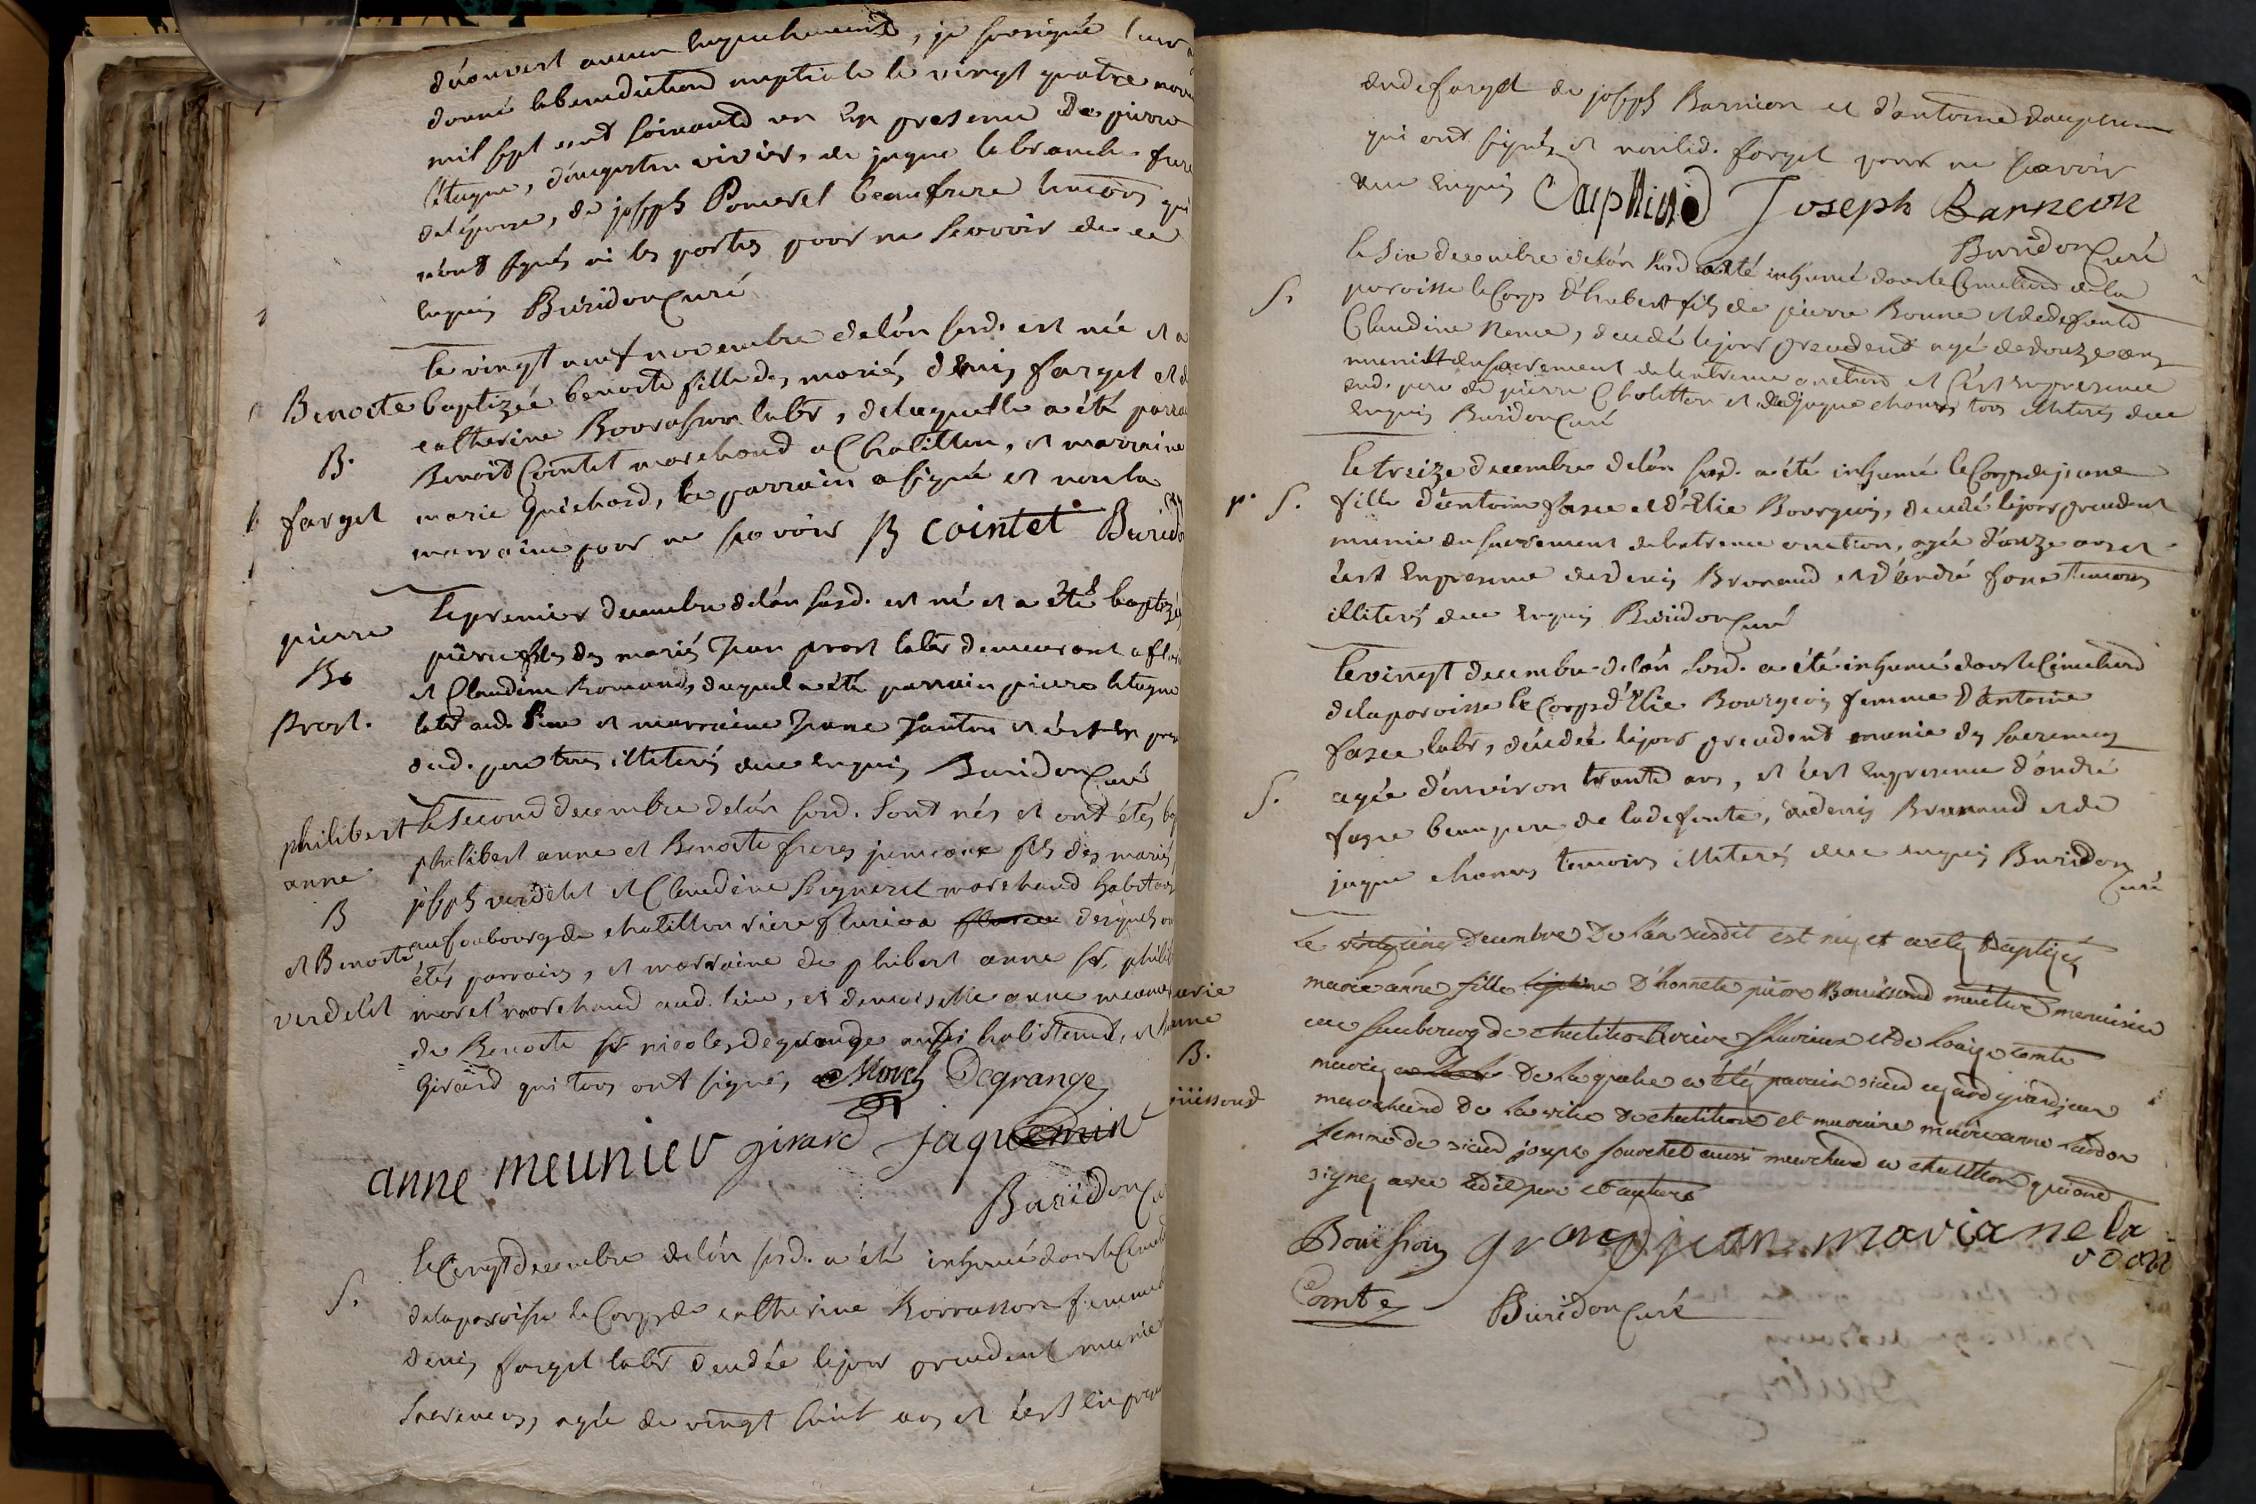 découvert aucun empechement, je soussigné leur
donné la benediction nuptiale le vingt quatre nov
mil sept cent soixante un en presence de pierre
létagne, d'augustin vivier, de jaque labranche frere
del'epouse, de joseph Pomerel beaufrere temoins qui
n'ont signés ni les parties pour ne sçavoir de ce
enquis Buridon Curé
le vingt neuf novembre del'an susd. est née et a
Benoite baptizée benoite fille des mariés denis farget et de
catherine Bourasson labr, delaquelle a été parra
B. Benoit Cointet marchand a Chatillon, et marraine
farget marie Guichard, le parrain a signé et non la
marraine pour ne sçavoir B cointet Burido
le premier decembre del'an susd. est né et a été baptizé
pierre pierre fils des mariés Jean prost labr demeurant a
B. et Claudine Romand, duquel a été parrain pierre letagne
Prost. labr aud. lieu et marraine Jeane Janton et c'est en pre
dud. pere tous illiterés de ce enquis Buridon Curé
philibert le second decembre del'an susd. sont nés et ont étés b
anne philibert anne et Benoite freres jumeaux fils des mariés
B joseph verdelet et Claudine Seigneret marchand habitans
et Benoite au faubourg de chatillon riere flurieu desquels on
étés parrains, et marraine de phibert anne sr. philib
verdelet morel marchand aud. lieu, et demoiselle anne meunier
de Benoite sr nicolas degrange aussi habitent, et
Girard qui tous ont signés Morel Degrange
anne meunier girard jaquemin
Buridon Cu
le Cinq decembre del'an susd. a été inhumé dans le Cimet
S. dela paroisse le Corps de catherine Borrasson femme
denis farget labr decedée le jour precedent munie
sacremens, agée de vingt huit ans et c'est en pre
dud. farget de joseph Barneon et d'antoine dauphin
qui ont signés et non led. farget pour ne sçavoir
de ce enquis Dauphin Joseph Barneon
Buridon Curé
le Six decembre del'an susd. a été inhumé dans le Cimetiere de la
S. paroisse le Corps d'hubert fils de pierre Bonne et de defunte
Claudine, decedé le jour precedent agé de douze ans
muni du sacrement del'extreme onction et c'est en presence
dud. pere de pierre Cholitton et de jaque chanus tous illiterés de ce
enquis Buridon Curé
le treize decembre del'an susd. a été inhumé le Corps de jeane
p. S. fille d'antoine fasre et d'Elie Bourgeois, decedé le jour precedent
munie du sacrement del'extreme onction, agée d'onze ans et
c'est en presence de denis Brunand et d'andré fasre temoins
illiterés de ce enquis Buridon Curé
le vingt decembre del'an susd. a été inhumé dans le Cimetiere
dela paroisse le Corps d'Elie Bourgeois femme d'antoine
fasre labr, decedée le jour precedent munie des sacremens
S. agée d'environ trante ans, et c'est en presence d'andré
fasre beaupere de la defunte, de denis Brunand et de
jaque chanus temoins illiterés de ce enquis Buridon
Curé
le vingt cinq Decembre De l'an susdit est née et a eté Baptizée
marie marie anne fille D'honnete pierre Bouissoud maitre menuisier
anne au fauboourg de chatillon riere flurieux et de Loüise comte
B. mariez De la quelle a été parain sieur grandjean
marchand De la ville De chatillon et maraine marie anne Laudon
femme de sieur joseph souchet aussi marchand a chatillon qui ont
signez avec Ledit pere et autres
Boüissou grandjean marianela
udon
Comte Buridon Curé